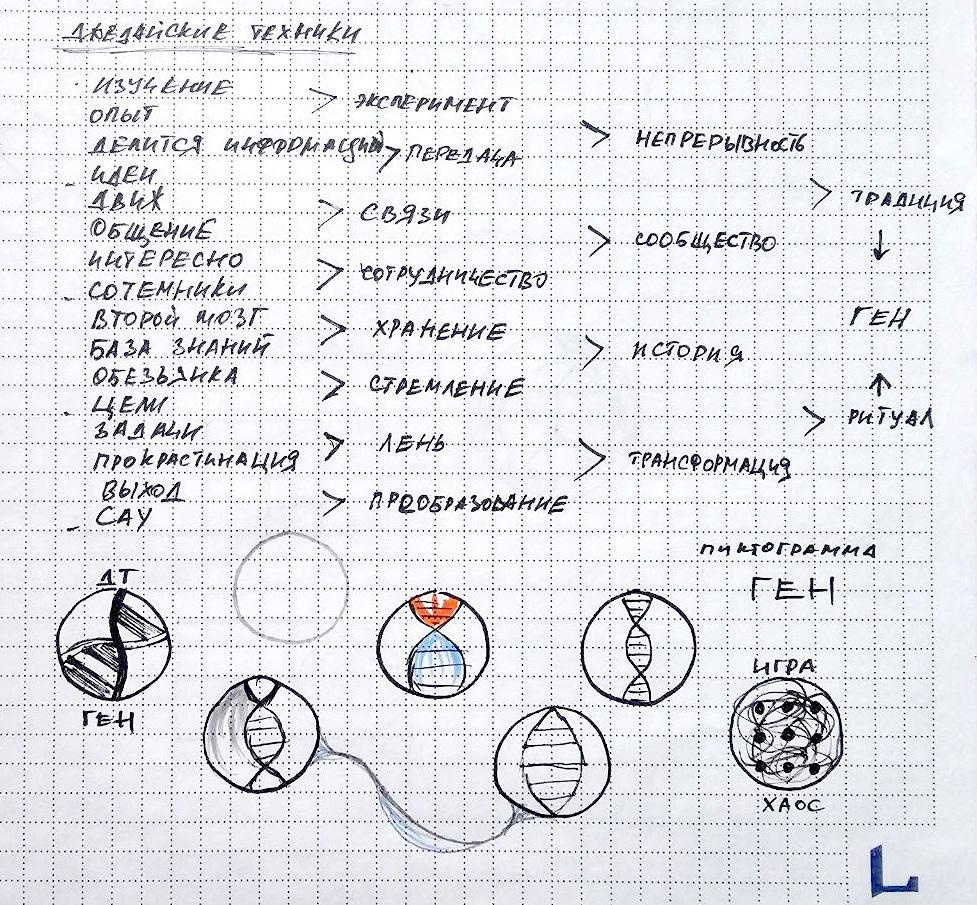 ДЖЕДАЙСКИЕ ТЕХНИКИ
ИЗУЧЕНИЕ
ОПЫТ
ДЕЛИТСЯ ИНФОРМАЦИЕЙ
ИДЕИ
ДВИЖ
ОБЩЕНИЕ
ИНТЕРЕСНО
СОТЕМНИКИ
ВТОРОЙ МОЗГ
БАЗА ЗНАНИЙ
ОБЕЗЬЯНКА
ЦЕЛИ
ЗАДАЧИ
ПРОКРАСТИНАЦИЯ
ВЫХОД
САУ
> ЭКСПЕРИМЕНТ
> ПЕРЕДАЧА
> СВЯЗИ
> СОТРУДНИЧЕСТВО
> ХРАНЕНИЕ
> СТРЕМЛЕНИЕ
> ЛЕНЬ
> ПРООБРАЗОВАНИЕ
> НЕПРЕРЫВНОСТЬ
> СООБЩЕСТВО
> ИСТОРИЯ
> ТРАНСФОРМАЦИЯ
> ТРАДИЦИЯ
↓
ГЕН
↑
> РИТУАЛ
ПИКТОГРАММА
ГЕН
ДТ
ГЕН
ИГРА
ХАОС
L